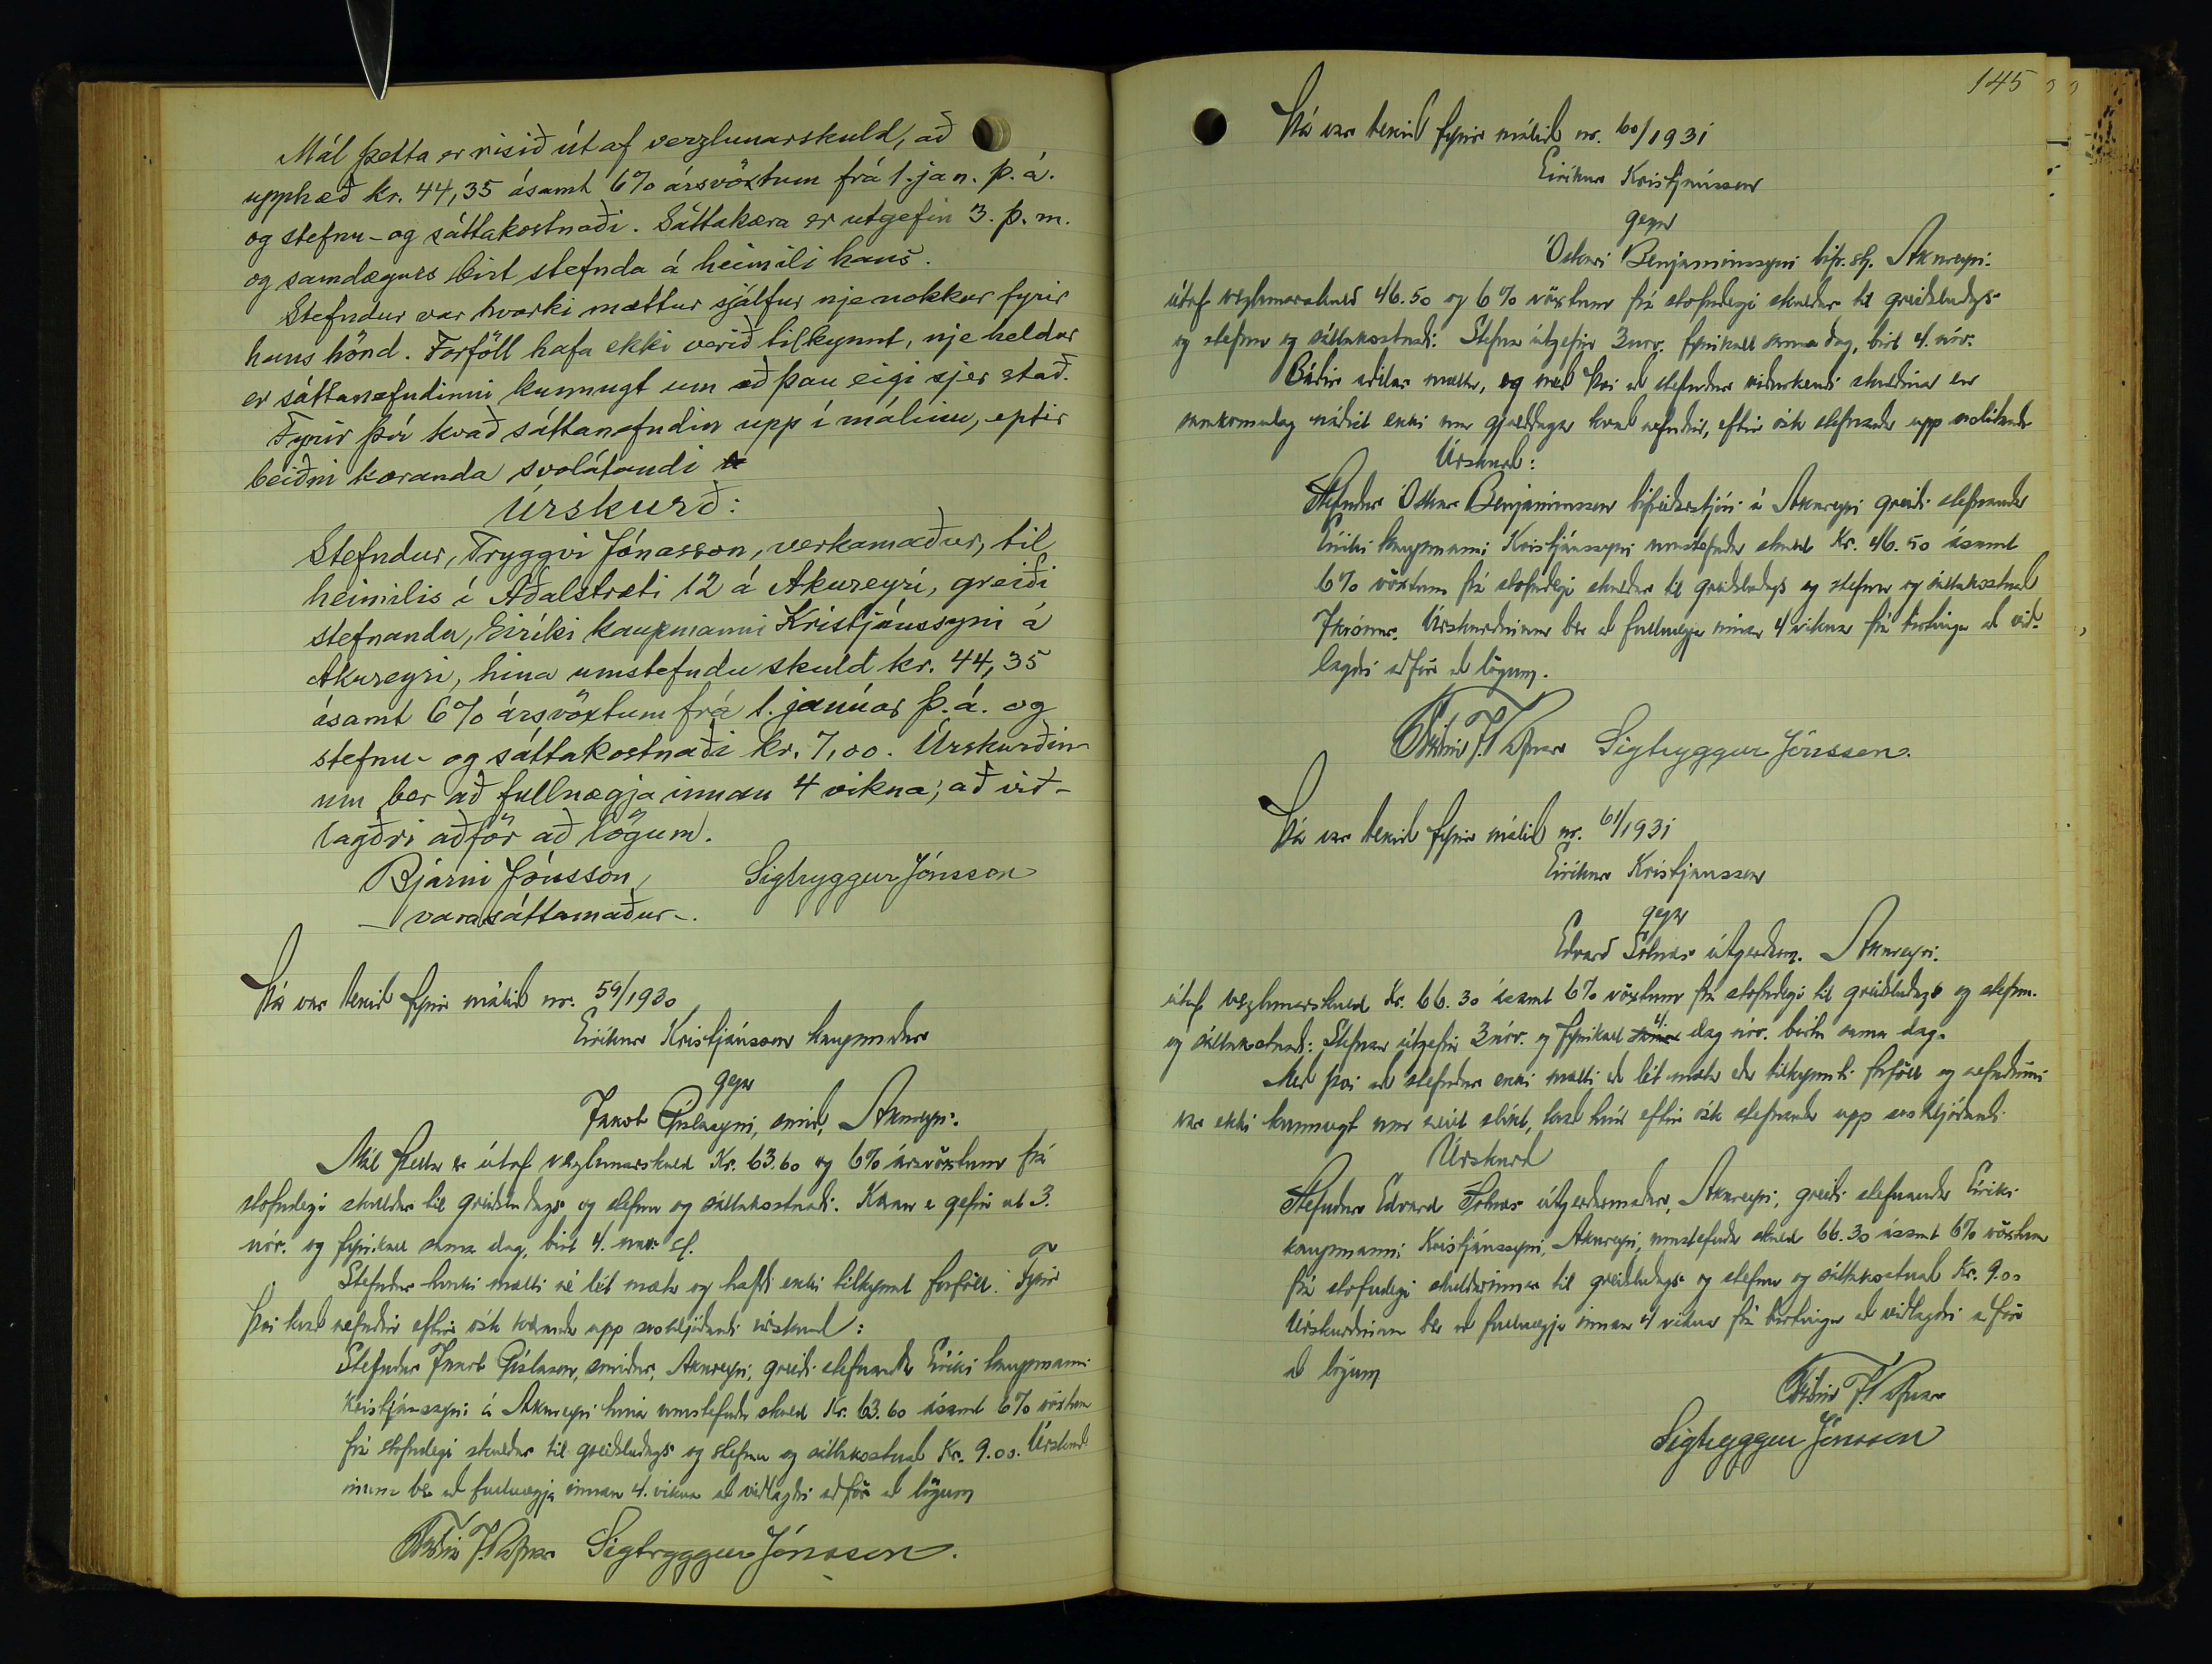 Mál þetta er risið út af verzlunarskuld, að
upphæð kr. 44,35 ásamt 6% ársvöxtum frá 1. jan. þ.á.
og stefnu- og sáttakostnaði. Sáttakæra er utgefin 3. þ.m.
og samdægurs birt stefnda á heimili hans.
Stefndur var hvorki mættur sjálfur nje nokkur fyrir
hans hönd. Forföll hafa ekki verið tilkynnt, nje heldur
er sáttanefndinni kunnugt um að þau eigi sjer stað.
Fyrir því kvað sáttanefndin upp í málinu, eptir
beiðni kæranda svolátandi
Úrskurð:
Stefndur, Tryggvi Jónasson, verkamaður, til
heimilis í Aðalstræti 12 á Akureyri, greiði
stefnanda, Eiríki kaupmanni Kristjánssyni á
Akureyri, hina umstefndu skuld kr. 44,35
ásamt 6% ársvöxtum frá 1. janúar þ.á. og
stefnu- og sáttakostnaði kr. 7,00. Úrskurðin-
um ber að fullnægja innan 4 vikna, að við-
lagðri aðför að lögum.
Bjarni Jónsson, Sigtryggur Jónsson
- varasáttamaður -.
Þá var tekið fyrir málið nr. 59/1930
Eiríkur Kristjánsson kaupmaður
gegn
Jakob Gíslasyni, smið, Akureyri.
Mál þetta er útaf verzlunarskuld Kr. 63.60 og 6% ársvöxtum frá
stofndegi skuldar til greiðsludags og stefnu og sáttakostnaði. Kæran er gefin út 3.
nóv. og fyrirkall sama dag, birt 4. nóv. sl.
Stefndur hvorki mætti né lét mæta og hafði ekki tilkynnt forföll. Fyrir
því kvað nefndin eftir ósk kæranda upp svohljóðandi úrskurð:
Stefndur Jakob Gíslason, smiður, Akureyri, greiði stefnanda Eiríki kaupmanni
Kristjánssyni á Akureyri hina umstefndu skuld Kr. 63.60 ásamt 6% vöxtum
frá stofndegi skuldar til greiðsludags og stefnu og sáttakostnað Kr. 9.00. Úrskurð-
inum ber að fullnægja innan 4. vikna að viðlagðri aðför að lögum
Sigtryggur Jónsson.
145
Þá var tekið fyrir málið nr. 60/1931
Eiríkur Kristjánsson
gegn
Óskari Benjamínssyni bifr.stj. Akureyri.
útaf verzlunarskuld 46.50 og 6% vöxtum frá stofndegi skuldar til greiðsludags
og stefnu og sáttakostnaði. Stefna útgefin 3 nóv. fyrirkall sama dag, birt 4. nóv.
Báðir aðilar mættu, og með því að stefndur viðurkendi skuldina en
samkomulag náðist ekki um gjalddaga kvað nefndin, eftir ósk stefnanda upp svolátandi
Úrskurð:
Stefndur Óskar Benjamínsson bifreiðarstjóri á Akureyri greiði stefnanda
Eiríki kaupmanni Kristjánssyni umstefnda skuld Kr. 46.50 ásamt
6% vöxtum frá stofndegi skuldar til greiðsludags og stefnu og sáttakostnað
7 krónur. Úrskurðinum ber að fullnægja innan 4 vikna frá birtingu að við-
lagðri aðför að lögum.
Sigtryggur Jónsson.
Þá var tekið fyrir málið nr. 61/1931
Eiríkur Kristjánsson
gegn
Edvard Sólnes útgerðarm. Akureyri.
útaf verzlunarskuld Kr. 66.30 ásamt 6% vöxtum frá stofndegi til greiðsludags og stefnu-
og sáttakostnaði: Stefnan útgefin 3 nóv. og fyrirkall 4. dag nóv. birtn sama dag.
Með því að stefndur ekki mætti eða lét mæta eða tilkynnti forföll og nefndinni
var ekki kunnugt um neitt slíkt, kvað hún eftir ósk stefnanda upp svohljóðandi
Úrskurð
Stefndur Edvard Sólnes útgerðarmaður, Akureyri, greiði stefnanda Eiríki
kaupmanni Kristjánssyni, Akureyri, umstefnda skuld 66.30 ásamt 6% vöxtum
frá stofndegi skuldarinnar til greiðsludags og stefnu og sáttakostnað Kr. 9.00
Úrskurðinum ber að fullnægja innan 4 vikna frá birtingu að viðlagðri aðför
að lögum
Sigtryggur Jónsson